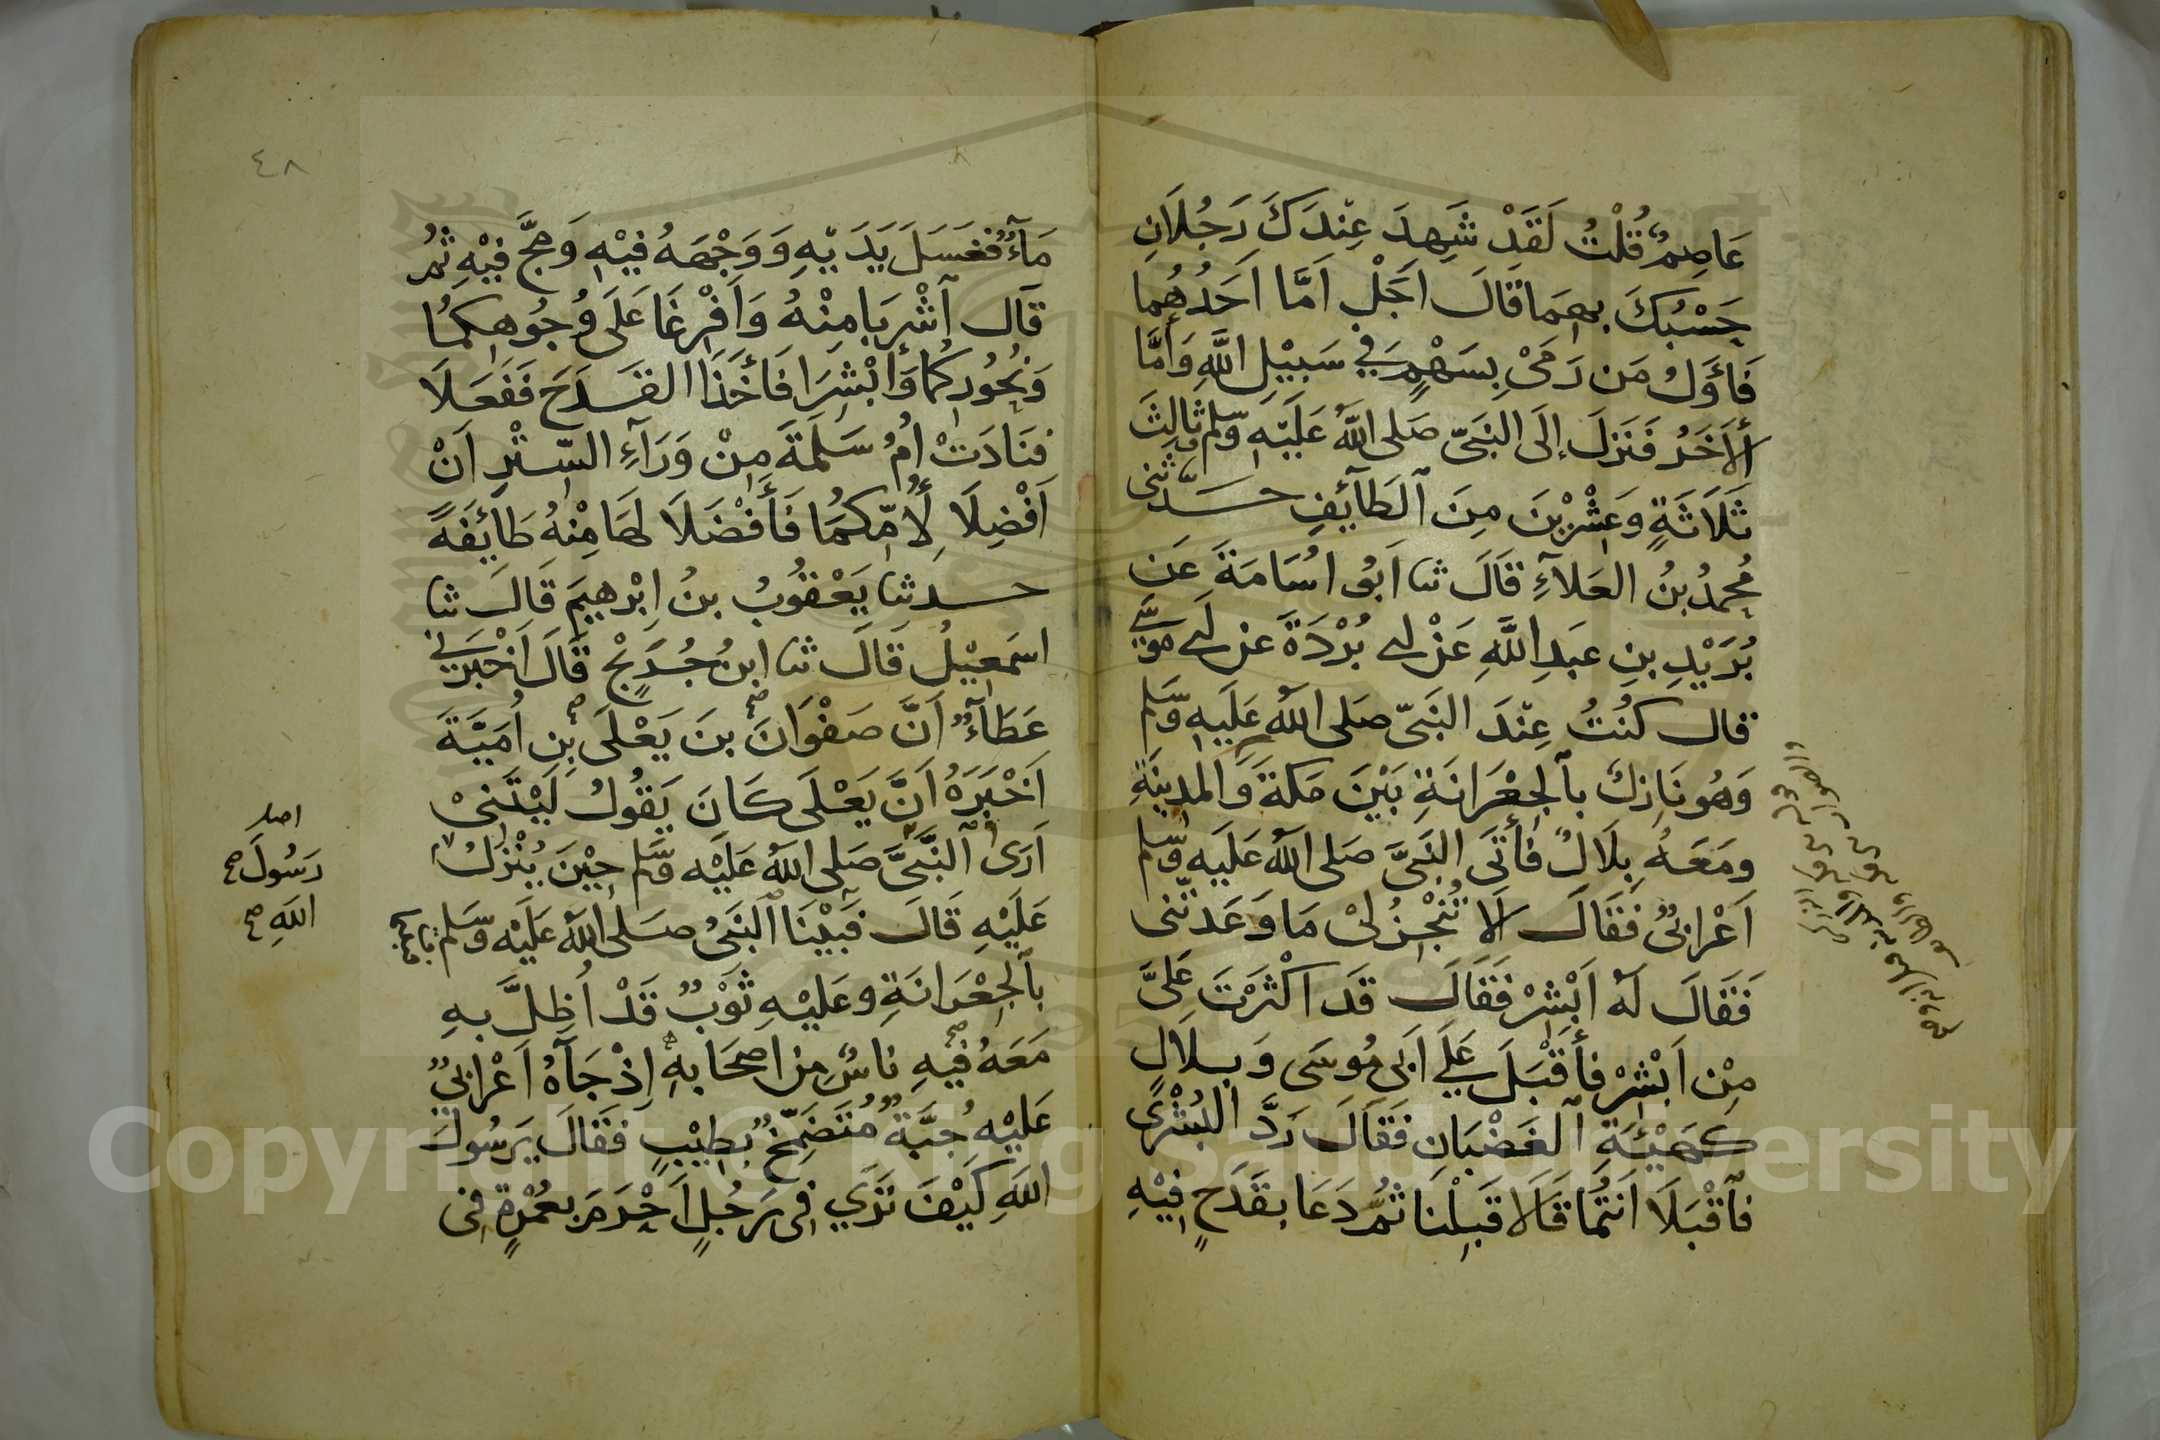 عَاصِمٌ قُلْتُ لَقَدْ شَهِدَ عِنْدَكَ رَجُلَانِ
حَسْبُكَ بِهِمَا قَالَ اَجَلْ اَمَّا اَحَدُهُما
فَأَوَّلُ مَن رَمَىٰ بِسَهْمٍ فِي سَبِيْلِ اللَّهِ وَأَمَّا
الْأٰخَرُ فَنَزَلَ إلَى النَّبيّ صَلى اللَّهُ عَلَيْهِ وسّلم ثالِثَ
ثَلَاثَةٍ وَعِشْرِيْنَ مِنَ ٱلطَآئِفِ حَدَّثَنى
مُحَمدُ بنُ العَلَآءِ قَالَ ثنا اَبُو اسُامَةَ عَن
بُرَيْدِ بنِ عَبدِ اللَّهِ عَنْ ابي بُرْدَةَ عن ابي مُوسَى
قال كنُتُ عِنْدَ النَبيّ صَلى اللهُ عَلَيهِ وسَّلم
وَهُو نَازِلٌ بٱلجِعْرَانَةِ بَيْنَ مَكةَ وَالمَدِينَةِ
ومَعَهُ بِلَالٌ فَأتَى النَبيَّ صَلى اللهُ عَلَيهِ وسّلم
اَعْرابيٌّ فَقَالَ اَلَا تُنْجِزُ لىْ مَا وَعَدتَّنى
فَقَالَ لَهُ اَبْشِرْ فَقَالَ قَد اَكْثَرْتَ عَلَيَّ
مِنْ اَبْشِرْ فأَقْبَلَ عَلَي اَبي مُوسَى وَبِلَالٍ
كَهَيْئَةِ ٱلغَضْبَانِ فَقَالَ رَدَّ البُشْرَى
فَٱقْبَلَا اَنتُمَا قَالَا قَبِلْنَا ثُمَّ دَعَا بِقَدَحٍ فِيْهِ
٤٨
مَآءٌ فَغَسَلَ يَدَيْهِ وَوَجْهَهُ فِيْهِ وَمَجَّ فِيْهِ ثمُ
قَال ٱشْرَبَا مِنْهُ وَاَفْرِغَا عَلَى وُجُوهِكُمَا
وَنُحُورِكُمَا وَأَبْشِرَا فَأَخَذَا القَدَحَ فَفَعَلَا
فنَادَتْ اُمُ سَلَمَةَ مِنْ وَرَآءِ السِّتْرِ اَنْ
اَفْضِلَا لِأُمِّكُمَا فَأَفْضَلَا لَهَا مِنْهُ طَآئِفَةً
حدثنا يَعْقُوبُ بنُ اِبْرهيمَ قَالَ ثنا
اسمَعِيْلُ قَالَ ثنا ابنُ جُرَيْجٍ قَالَ اَخْبَرَنِي
عَطَآءٌ اَنَّ صَفْوَانَ بنَ يَعْلَى بنِ اُمَيَّةَ
اَخْبَرَهُ اَنَّ يَعْلَى كَانَ يَقُولُ لَيْتَنىْ
اَرَى ٱلنَّبيَّ صَلى اللهُ عَلَيْه وسّلم حِيْنَ يُنْزَلُ
عَلَيْهِ قَالَ فَبَيْنَا ٱلنَبيُّ صَلى اللهُ عَلَيْه وسّلم
بٱلجِعْرَانَةِ وعَلَيْهِ ثَوْبٌ قَدْ اُظِلَّ بهِ
مَعَهُ فيْهِ ناسٌ مِن اصحَابهِ اِذْ جَآءَهُ اَعْرابيٌّ
عَليْهِ جُبَّةٌ مُتَضَمِّخٌ بطِيْبٍ فَقَالَ يرَسُولَ
اللهِ كَيْفَ تَرَي فى رَجُلٍ اَحْرَمَ بعُمْرةٍ فى
اصل
رَسُولَ صح
اللهِ صح
Copyright © King Saud University